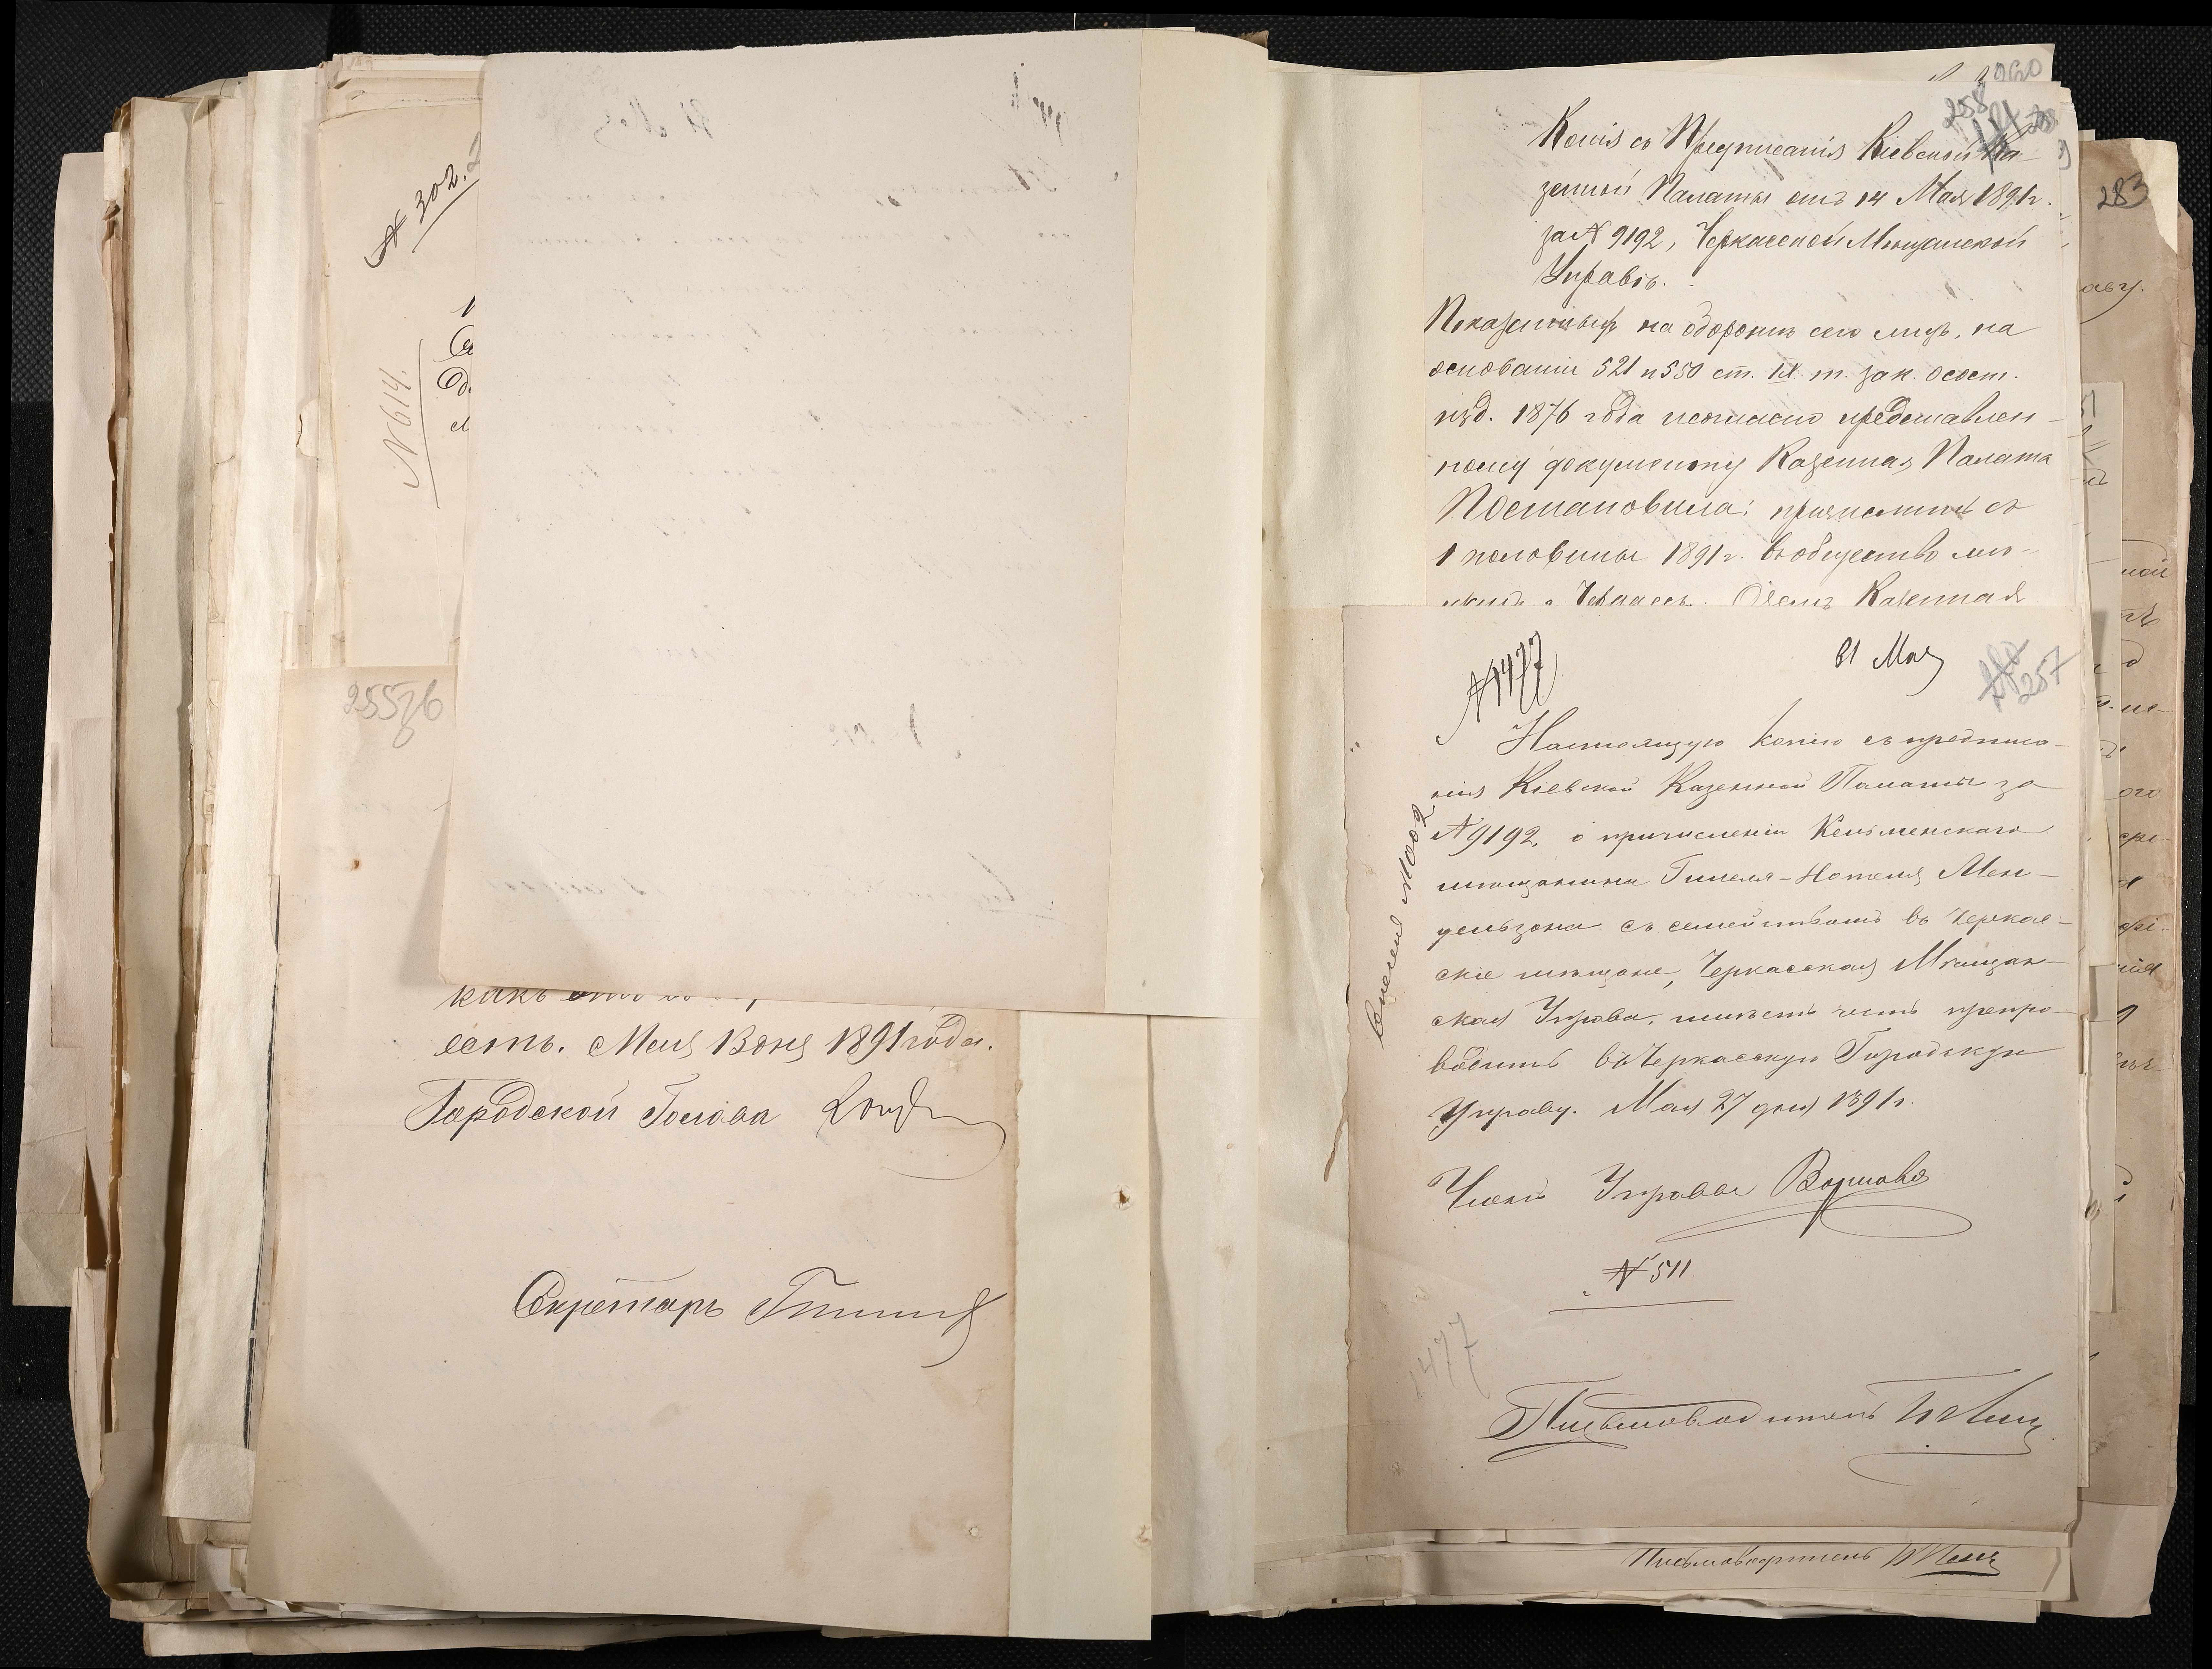 № 302.
№ 614.
255
какъ
есть. Мая 13 дня 1891 года.
Городской Голова
Секретарь
258
Копія съ Предписанія Кіевской Ка-
зенной Палаты отъ 14 Мая 1891 г.
за № 9192, Черкасской Мѣщанской
Управѣ.
Показанныхъ на оборотѣ сего лицъ, на
основаніи 521 и 550 ст. IX т. зак. о сост.
изд. 1876 года и согласно представлен-
ному документу Казенная Палата
Постановила: причислить съ
1 половины 1891 г. въ общество мѣ-
щанъ г. Черкассъ. О чемъ Казенная
283
аву.
№ 1477
31 Мая
257
Настоящую копію съ предписа-
нія Кіевской Казенной Палаты за
№ 9192, о причисленіи Кельменскаго
мѣщанина Гилеля-Нотеля Мен-
дельзона съ семействомъ въ Черкас-
скіе мѣщане, Черкасская Мѣщан-
ская Управа, имѣетъ честь препро-
водить въ Черкасскую Городскую
Управу. Мая 27 дня 1891 г.
Членъ Управы
№ 511.
1477
Письмоводитель
Письмоводитель